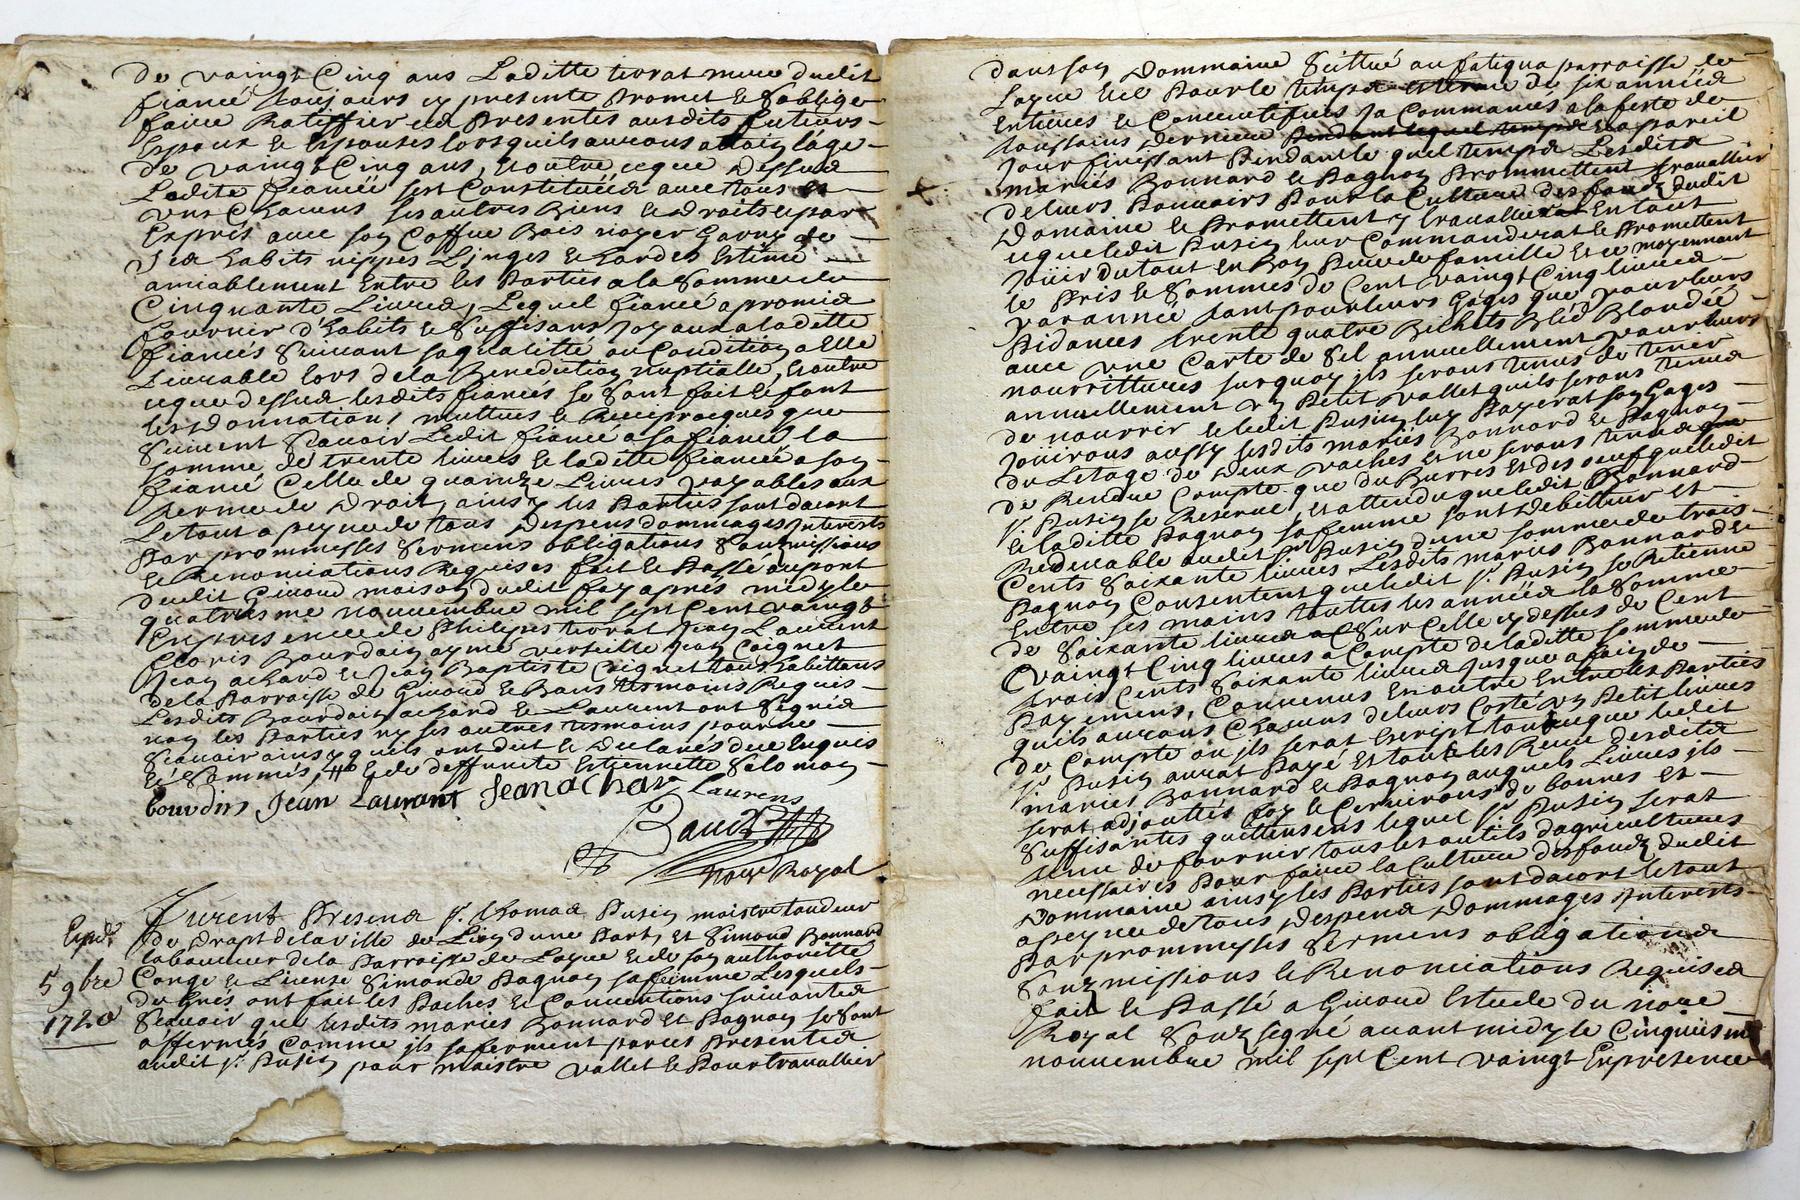 de vaingt Cinq ans Laditte tivrat mere dudit
fiancé toujours cy presente promet & soblige
faire Ratiffier ces presentes ausdits futurs
Espoux & Espouses lors quils auront attain lage
de vaingt Cinq ans, Et outre ce que dessus
Ladite fiancée sest Constituéés avec tous et
uns Chacuns ses autres Biens & droits & par
Expris avec son Coffre Bois noyer Garny de
Ses habits nippes Linges & hardes Estimé
amiablement Entre les Parties a la somme de
Cinquante Livres, Lequel fiancé a promis
fournir d'habits & suffisans joyaux a laditte
fiancés suivant sa qualitté ou Condition a Elle
Livrable lors de la Benediction nuptialle, Et outre
ce que dessus lesdits fiancés se sont fait & font
les donnations muttues & Reciproques que
suivent scavoir Ledit fiancé a sa fiancé la
somme de trente livres & laditte fiancée a son
fiancé Celle de quainze Livres payables aux
terme de droit, ainsy les Parties sont dacort
Le tout a peyne de tous despens dommages Interests
Par prommesses sermens obligations soumissions
& Renonciations Requises fait & Passé au pont
dudit Givord maison dudit fay apres midy le
quatriesme nouvembre mil sept Cent vaingt
En presence de Philipes tivrat Jean Laurent
Cloris Bourdain ayme verseille Jean Caignet
Jean achard & Jean Baptiste Caignet tous habittans
de la Parroisse de Givord & Bans tesmoins Requis
Lesdits Bourdain achard & Laurent ont signés
non les Parties ny les autres tesmoins pour ne
scavoir ainsy quils ont dit & declarés de ce Enquis
& sommés, # & de deffunte Estiennette salomon
bourdin Jean Laurant Jean achar Laurens
Baud
Nore Royal
Expdé
5 9bre
1720
Furent Presens sr. thomas Pusin maistre tondeur
de drapt de la ville de Lion dune Part, Et Simond Bonnard
laboureur de la Parroisse de Layue & de son authoritté
Conge & License Simonde Pagnon sa femme Lesquels
de Grés ont fait les Paches & Conventions suivantes
scavoir que lesdits mariés Bonnard Et Pagnon se sont
affermés Comme ils safferment par ces Presentes
audit sr. Pusin pour maistre vallet & Pour travaillier
dans son dommaine scittué au fatiqua parroisse de
Layue & ce Pour le temps et terme de six annéés
Entieres & Consecutifves Ja Commances a la feste de
toussains derniere Pendant lequel temps & a pareil
Jour finissant Pendant le quel temps Lesdits
mariés Bonnard & Pagnon Prommettent travallier
de leurs Pouvoirs Pour la Culture des fondz dudit
Domaine & Promettent y travallier En tout
ce que ledit Pusin leur Commanderat & Promettent
Joüir du tout en Bon Pere de famille Et ce moyennant
le Pris & sommes de Cent vaingt Cinq livres
par année tant pour leurs Gages que pour leurs
Pidances trente quatre Bichets Bled Blondée
avec une Carte de sel annuellement pour leurs
nourrittures sur quoy ils seront tenus de tener
annuellement un Petit vallet quils seront tenus
de nourrir & ledit Pusin luy Payerat son Gages
Jouirons aussy lesdits mariés Bonnard & Pagnon
du Letage de deux vaches & ne seront tenus que
de Rendre Compte que du Burres Et des oeuf que ledit
sr. Pusin se Reserve, Et attendu que ledit Bonnard
& laditte Pagnon sa femme sont debitteur Et
Redevable audit sr Pusin dune somme de trois
Cents soixante livres Lesdits mariés Bonnard &
Pagnon Consentent que ledit sr. Pusin se Retienne
Entre ses mains touttes les années la somme
de soixante livres sur Celle cy dessus de Cent
vaingt Cinq livres a Compte de laditte somme de
trois Cents soixante livres jusque a fain de
Payement, Convenus En outre Entre les Parties
quils auront Chacuns de leurs Corté un Petit livres
de Compte ou ils serat Escript tout ce que ledit
sr. Pusin aurat Payé Et touts les Recu desdites
mariés Bonnard & Pagnon auquels Livres ils
serat adjoutter foy & Cerviront de bonnes Et
suffisantes quittensens lequel sr. Pusin serat
tenu de fournir tous les outils dagricultures
necessaires Pour faire la Culture des fondz dudit
Dommaine ainsy les Parties sont dacort le tout
a peyne de tous despens Dommages Interests
Par prommesses sermens obligations
soumissions & Renonciations Requises
fait & Passé a Givord Estude du nore
Royal soubz signé avant midy le Cinquiesme
nouvembre mil sept Cent vaingt En presence